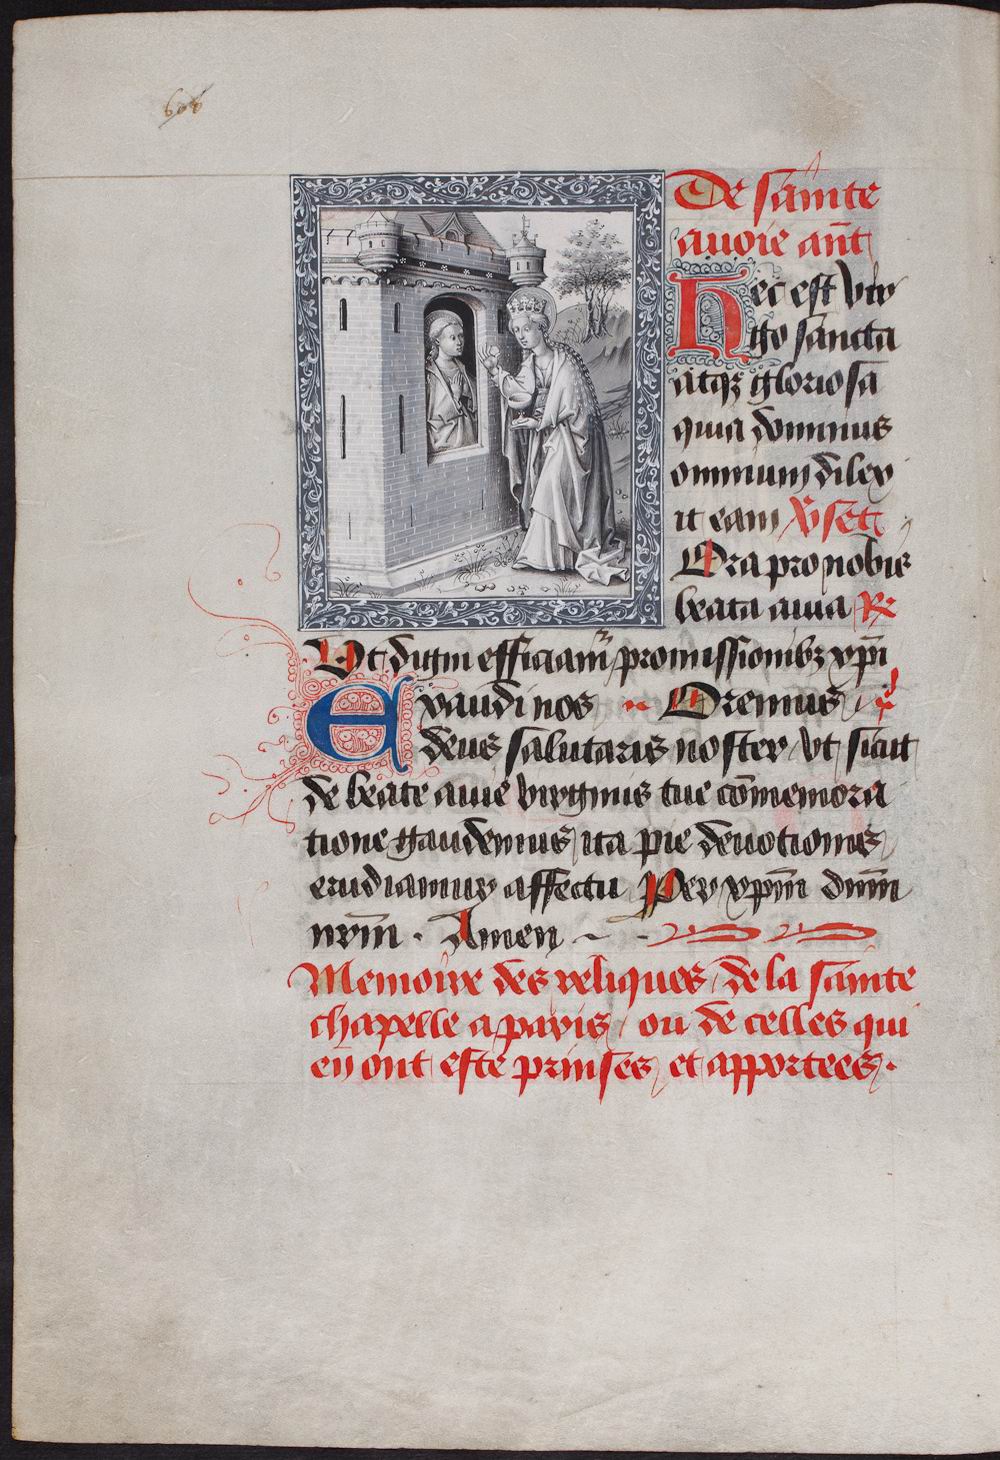 600
De sainte
auoie ant̄
Hec est vir
go sancta
atqꝫ gloriosa
quia dominus
omnium dilex
it eam v̄set
Ora pro nobis
beata auia ℞
Vt digni efficiam̄ promissionibꝫ xp̄i
Exaudi nos Oremus
deus salutaris noster vt sicut
de beate auie virginis tue cōmemora
tione gaudemus ita pie deuotionis
erudiamur affectu Per xp̄m dn̄m
nr̄m . Amen
Memoire des reliques de la sainte
chapelle a paris / ou de celles qui
en ont este prinses et apportees.